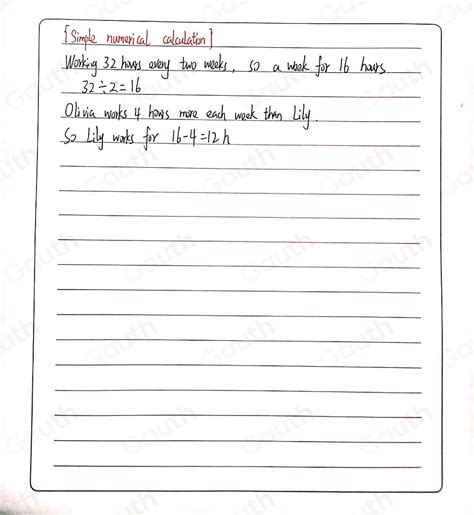 [Simple numerical calculation]
Working 32 hours every two weeks, so a week for 16 hours
32÷2=16
Olivia works 4 hours more each week than Lily.
So Lily works for 16-4=12h